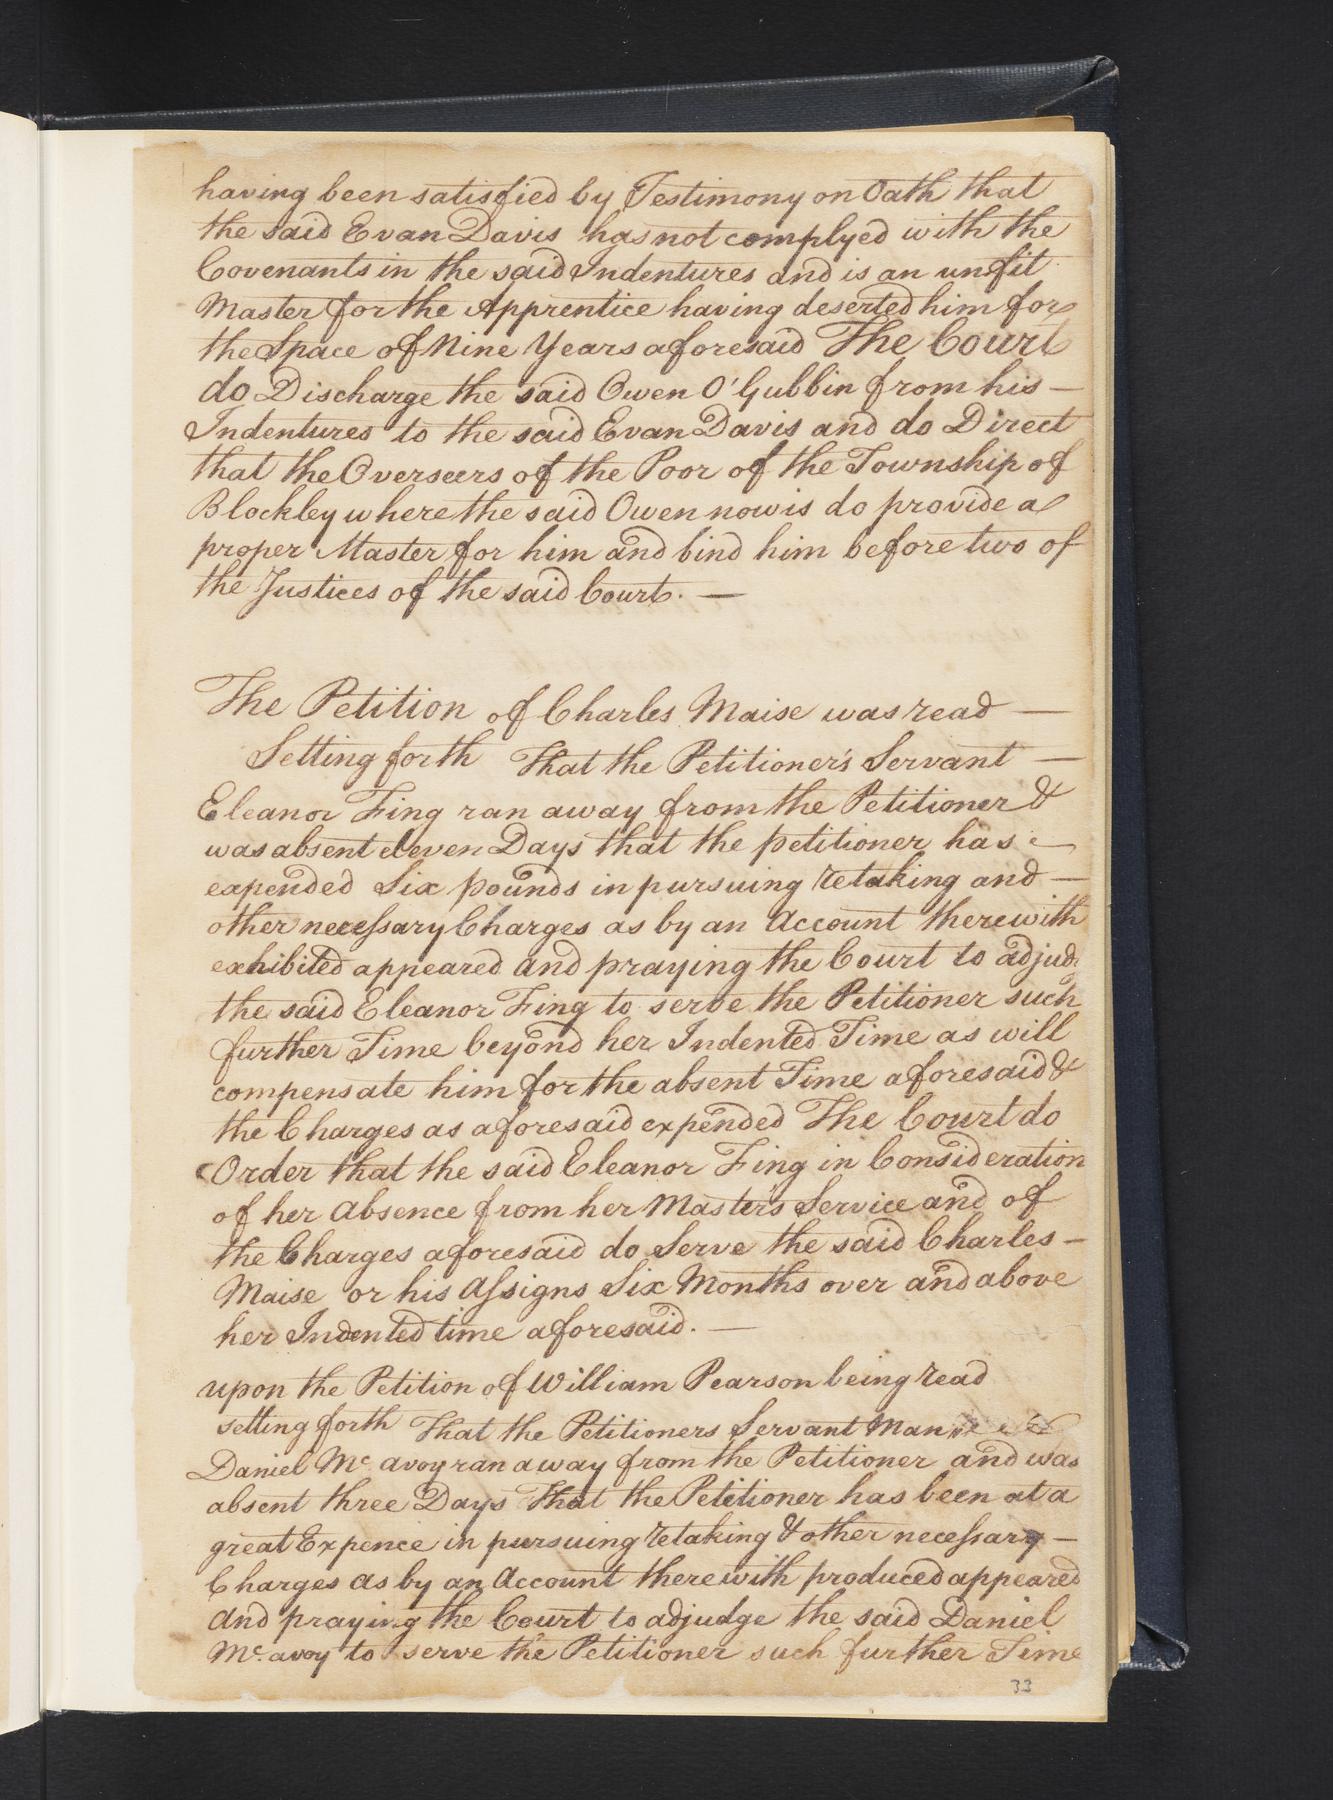 having been satisfied by Testimony on Oath that
the said Evan Davis has not complyed with the
Covenants in the said Indentures and is an unfit
Master for the Apprentice having deserted him for
the Space of Nine Years aforesaid The Court
do Discharge the said Owen O'Gubbin from his —
Indentures to the said Evan Davis and do Direct
that the Overseers of the Poor of the Township of
Blockley where the said Owen now is do provide a
proper Master for him and bind him before two of
the Justices of the said Court. —
The Petition of Charles Maise was read —
Setting forth That the Petitioner's Servant —
Eleanor Fing ran away from the Petitioner &
was absent eleven Days that the petitioner has —
expended Six pounds in pursuing retaking and —
other necessary Charges as by an Account therewith
exhibited appeared and praying the Court to adjud
the said Eleanor Fing to serve the Petitioner such
further Time beyond her Indented Time as will
compensate him for the absent Time aforesaid &
the Charges as aforesaid expended The Court do
Order that the said Eleanor Fing in Consideration
of her Absence from her Master's Service and of
the Charges aforesaid do Serve the said Charles —
Maise or his Assigns Six Months over and above
her Indented time aforesaid. —
upon the Petition of William Pearson being read
setting forth That the Petitioners Servant Man
Daniel Mc. avoy ran away from the Petitioner and was
absent three Days That the Petitioner has been at a
great Expence in pursuing retaking & other necessary —
Charges as by an Account therewith produced appeared
And praying the Court to adjudge the said Daniel
Mc. avoy to serve the Petitioner such further Time
33